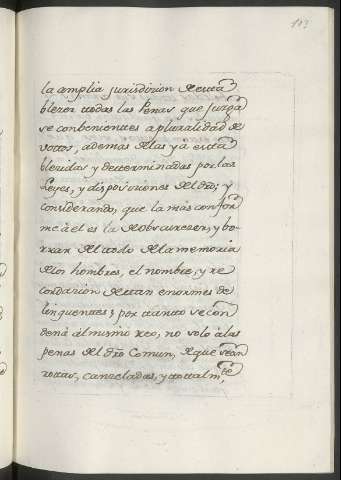 la amplia jurisdizion de esta
blezer ttodas las Penas que juzgã
se conbenienttes a pluralidad de
vottos, ademas de las yá estta
blezidas y detterminadas por las
Leyes, y disposiciones del dro; y
considerando, que la más confor
me à el es la de obscurezer, y bo-
rrar del ttodo de la memoria
de los hombres, el nombre, y re
cordazion de ttan enormes de
linquenttes; por ttantto se con
denà al mismo reo, no solo à las
penas del dro Comun, de que sean
rottas, canzeladas, y ttottalmte